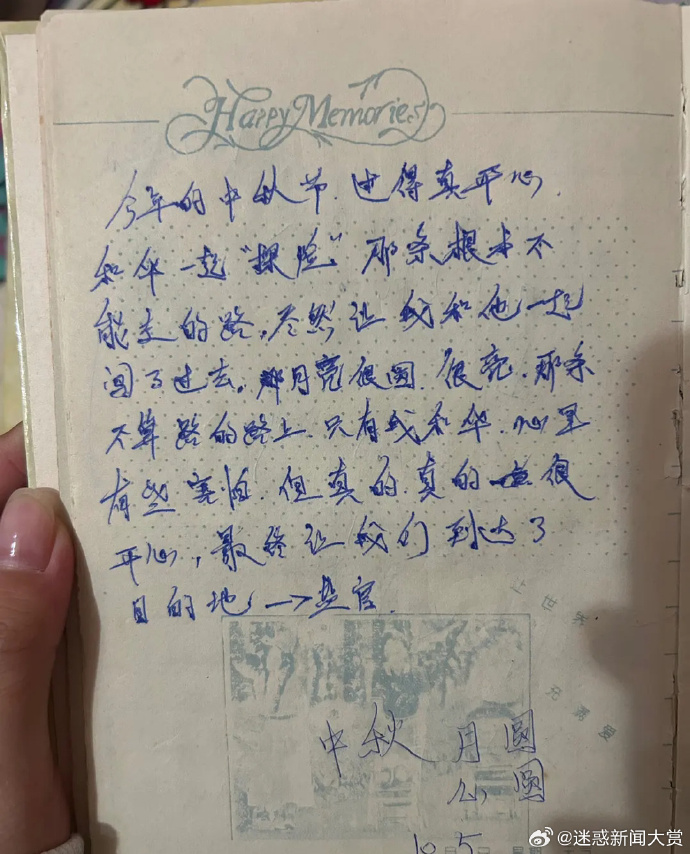 Happy Memories
今年的中秋节.过得真开心.
和华一起“探险”那条根本不
能走的路,居然让我和他一起
闯了过去。那月亮很圆.很亮.那条
不算路的路上.只有我和华.心里
有些害怕.但真的.真的很
开心,最终让我们到达了
目的地→盐官.
让世界 充满爱
中秋 月圆
心圆
10.5
@迷惑新闻大赏